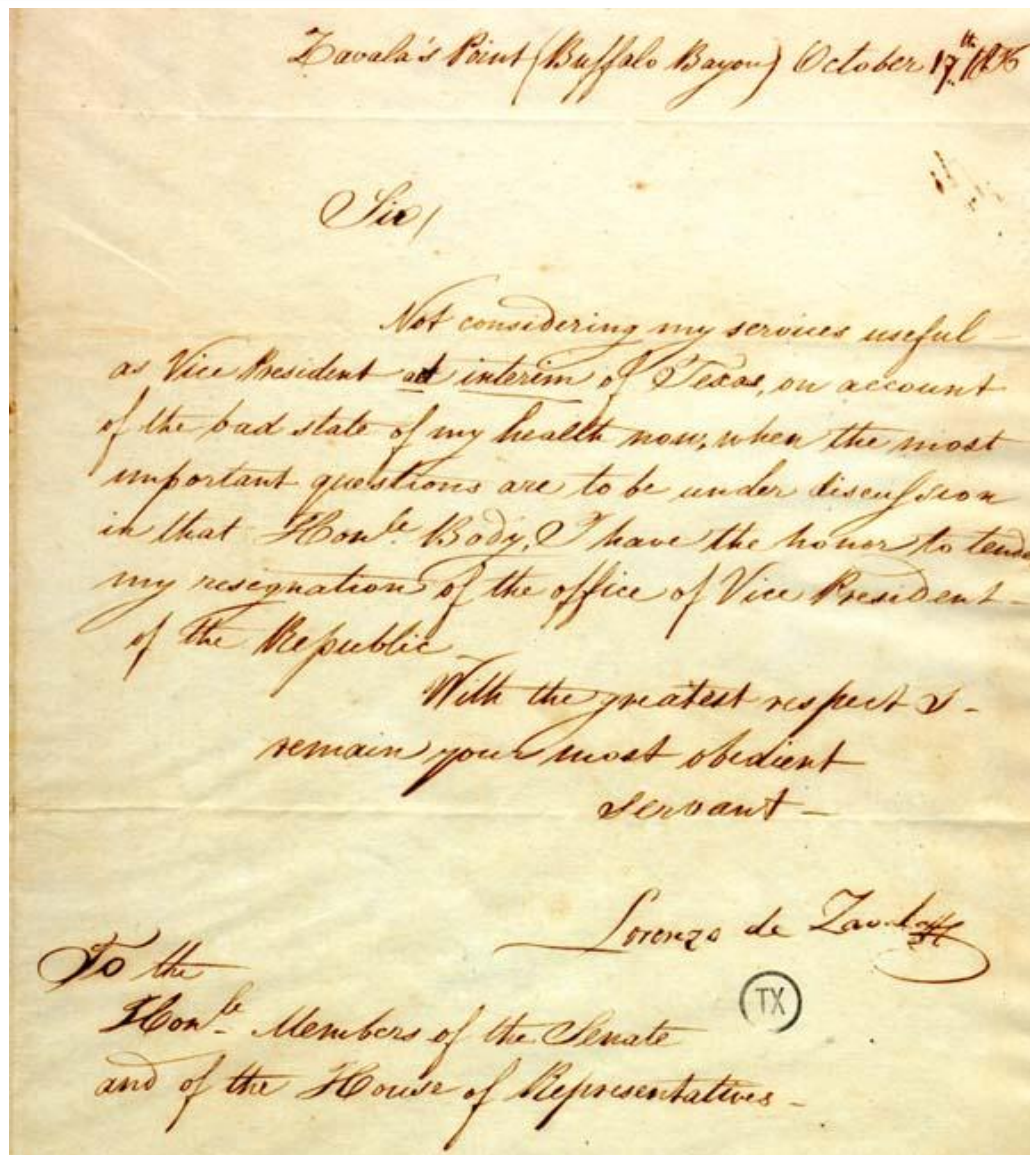 Zavala's Point (Buffalo Bayou) October 17th 1836
Sir/
Not considering my services useful
as Vice President ad interim of Texas, on account
of the bad state of my health now, when the most
important questions are to be under discussion
in that Honble. Body, I have the honor to tender
my resignation of the office of Vice President
of the Republic
With the greatest respect I
remain your most obedient
servant
Lorenzo de Zavala
TX
To the
Honble. Members of the Senate
and of the House of Representatives